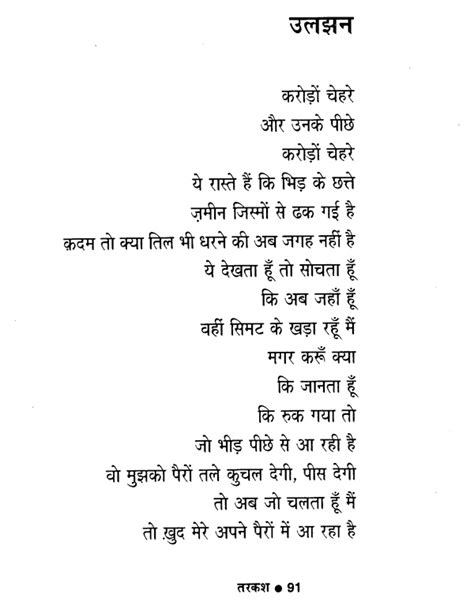 उलझन
करोड़ों चेहरे
और उनके पीछे
करोड़ों चेहरे
ये रास्ते हैं कि भिड़ के छत्ते
ज़मीन जिस्मों से ढक गई है
क़दम तो क्या तिल भी धरने की अब जगह नहीं है
ये देखता हूँ तो सोचता हूँ
कि अब जहाँ हूँ
वहीं सिमट के खड़ा रहूँ मैं
मगर करूँ क्या
कि जानता हूँ
कि रुक गया तो
जो भीड़ पीछे से आ रही है
वो मुझको पैरों तले कुचल देगी, पीस देगी
तो अब जो चलता हूँ मैं
तो ख़ुद मेरे अपने पैरों में आ रहा है
तरकश ● 91